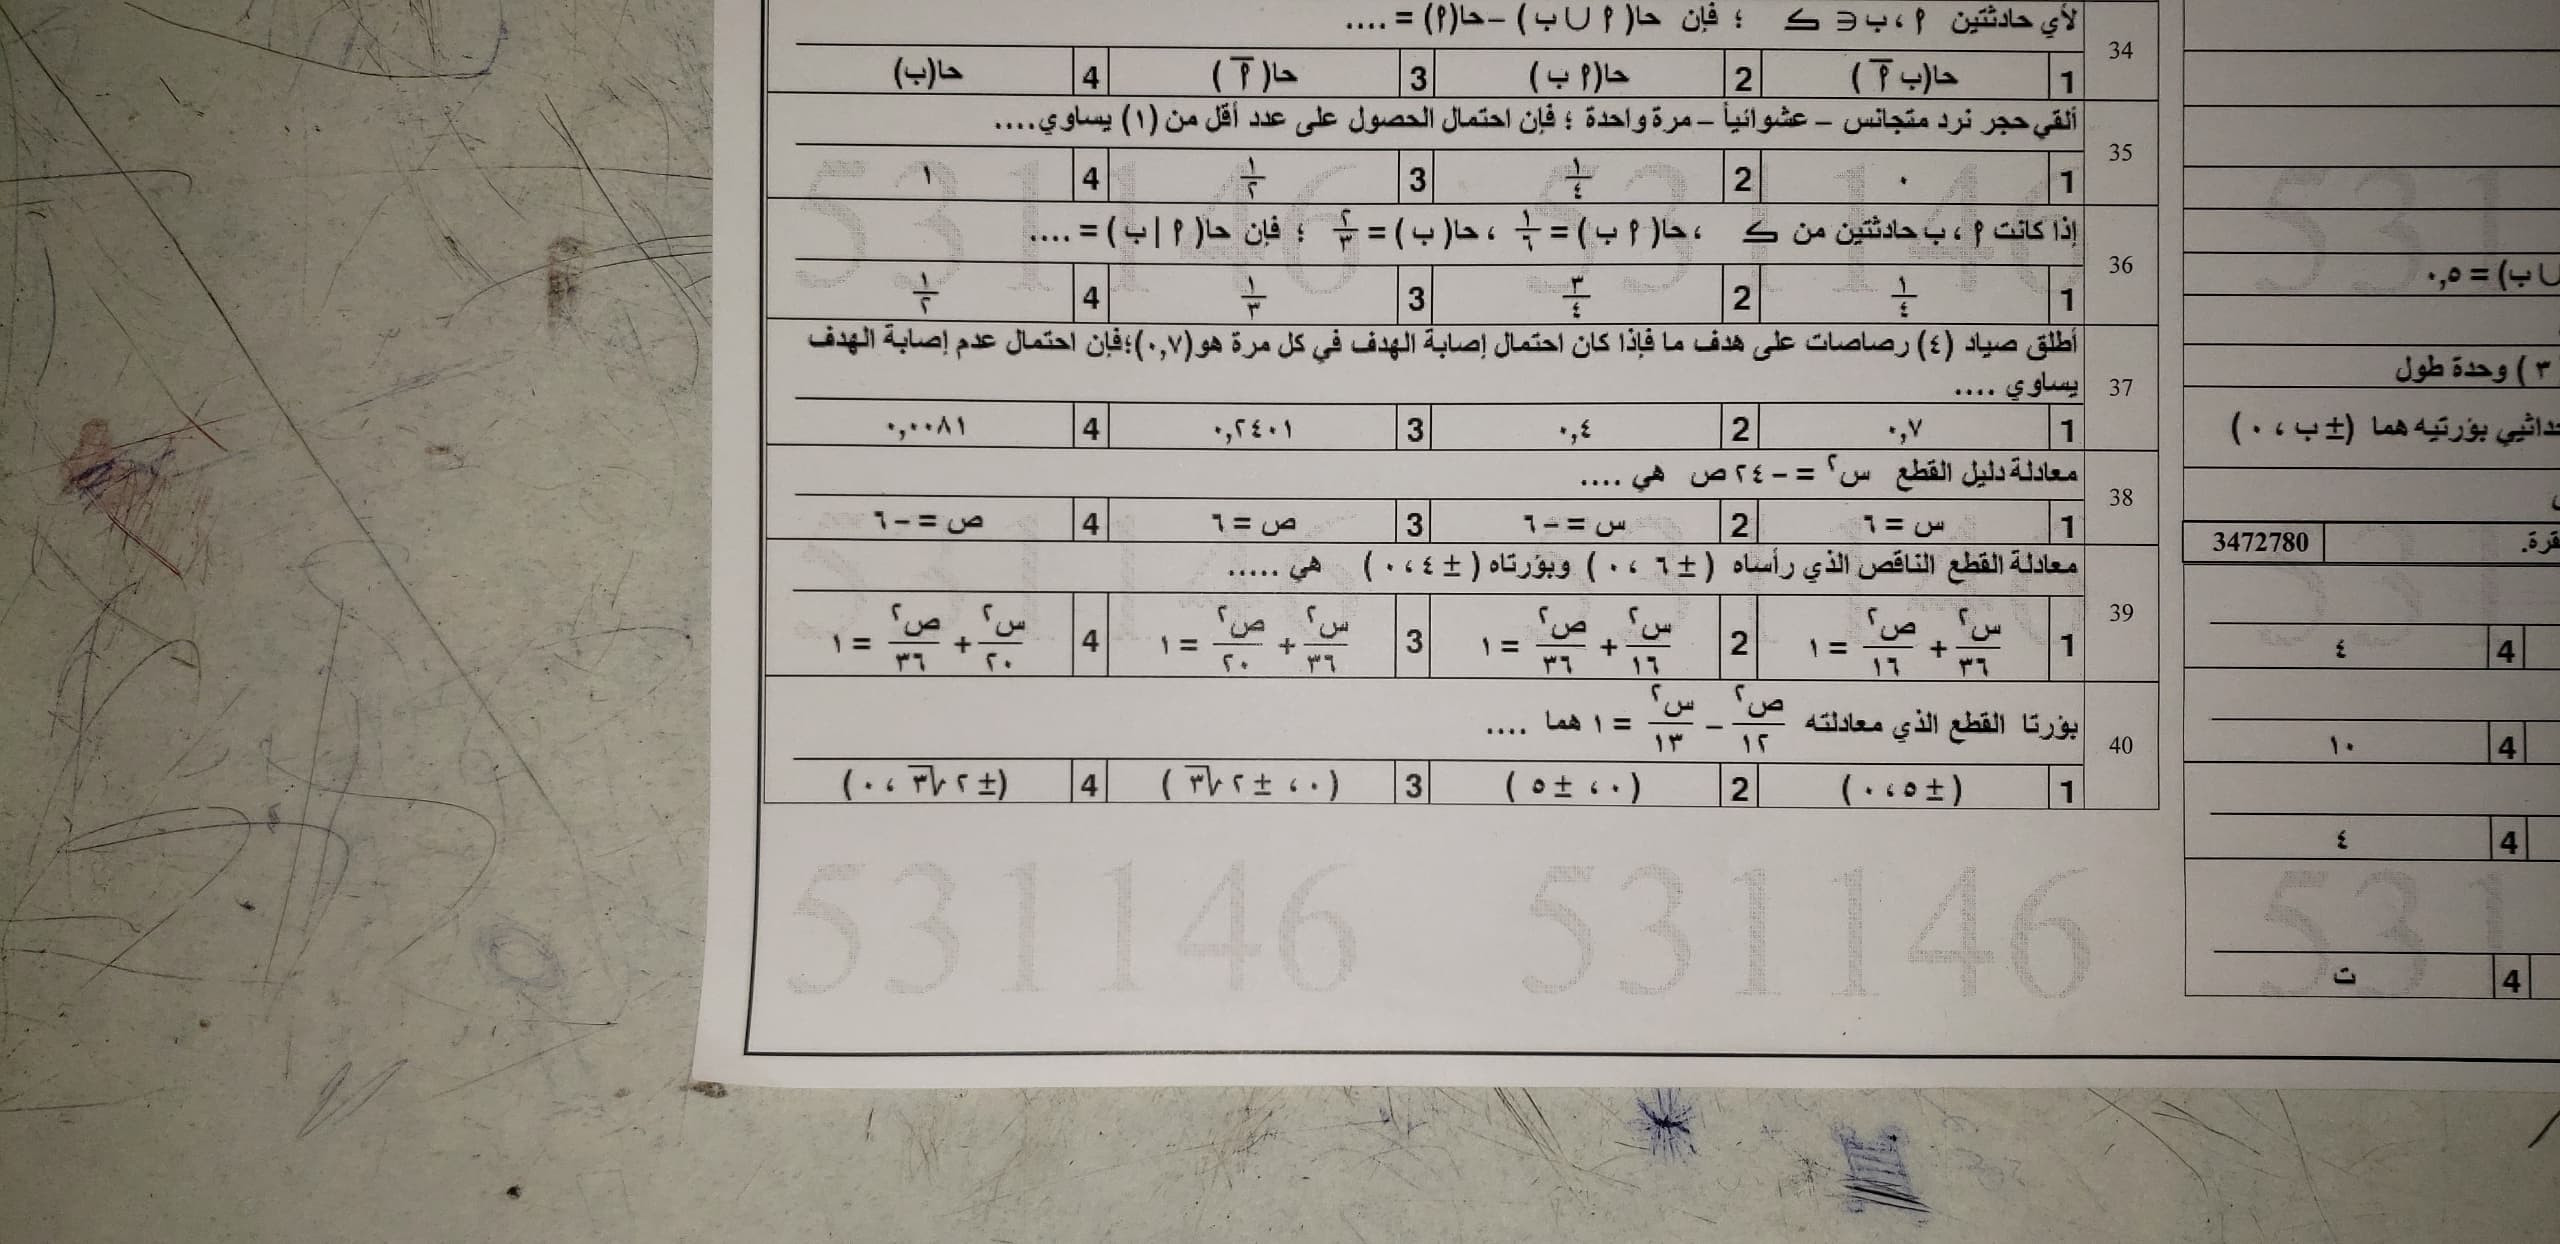 34 لأي حادثتين م ، ب ∈ ك ؛ فإن حا( م ∪ ب ) – حا(م) = ....
1 حا(ب م̅ ) 2 حا(م ب ) 3 حا( م̅ ) 4 حا(ب)
35 ألقي حجر نرد متجانس – عشوائياً – مرة واحدة ؛ فإن احتمال الحصول على عدد أقل من (١) يساوي....
1 ٠ 2 ١/٤ 3 ١/٢ 4 ١
36 إذا كانت م ، ب حادثتين من ك ، حا( م ب ) = ١/٦ ، حا( ب ) = ٢/٣ ؛ فإن حا( م | ب ) = ....
1 ١/٤ 2 ٣/٤ 3 ١/٣ 4 ١/٢
37 أطلق صياد (٤) رصاصات على هدف ما فإذا كان احتمال إصابة الهدف في كل مرة هو(٠,٧)؛فإن احتمال عدم إصابة الهدف
يساوي ....
1 ٠,٧ 2 ٠,٤ 3 ٠,٢٤٠١ 4 ٠,٠٠٨١
38 معادلة دليل القطع س٢ = – ٢٤ ص هي ....
1 س = ٦ 2 س = – ٦ 3 ص = ٦ 4 ص = – ٦
39 معادلة القطع الناقص الذي رأساه ( ± ٦ ، ٠ ) وبؤرتاه ( ± ٤ ، ٠ ) هي .....
1 س٢/٣٦ + ص٢/١٦ = ١ 2 س٢/١٦ + ص٢/٣٦ = ١ 3 س٢/٣٦ + ص٢/٢٠ = ١ 4 س٢/٢٠ + ص٢/٣٦ = ١
40 بؤرتا القطع الذي معادلته ص٢/١٢ – س٢/١٣ = ١ هما ....
1 ( ± ٥ ، ٠ ) 2 ( ٠ ، ± ٥ ) 3 ( ٠ ، ± ٢ √٣ ) 4 ( ± ٢ √٣ ، ٠ )
531146 531146
531146 531146
∪ ب) = ٠,٥
٣ ) وحدة طول
بؤرتيه هما ( ± ب ، ٠ )
3472780
4 ٤
4 ١٠
4 ٤
4 ت
531
531